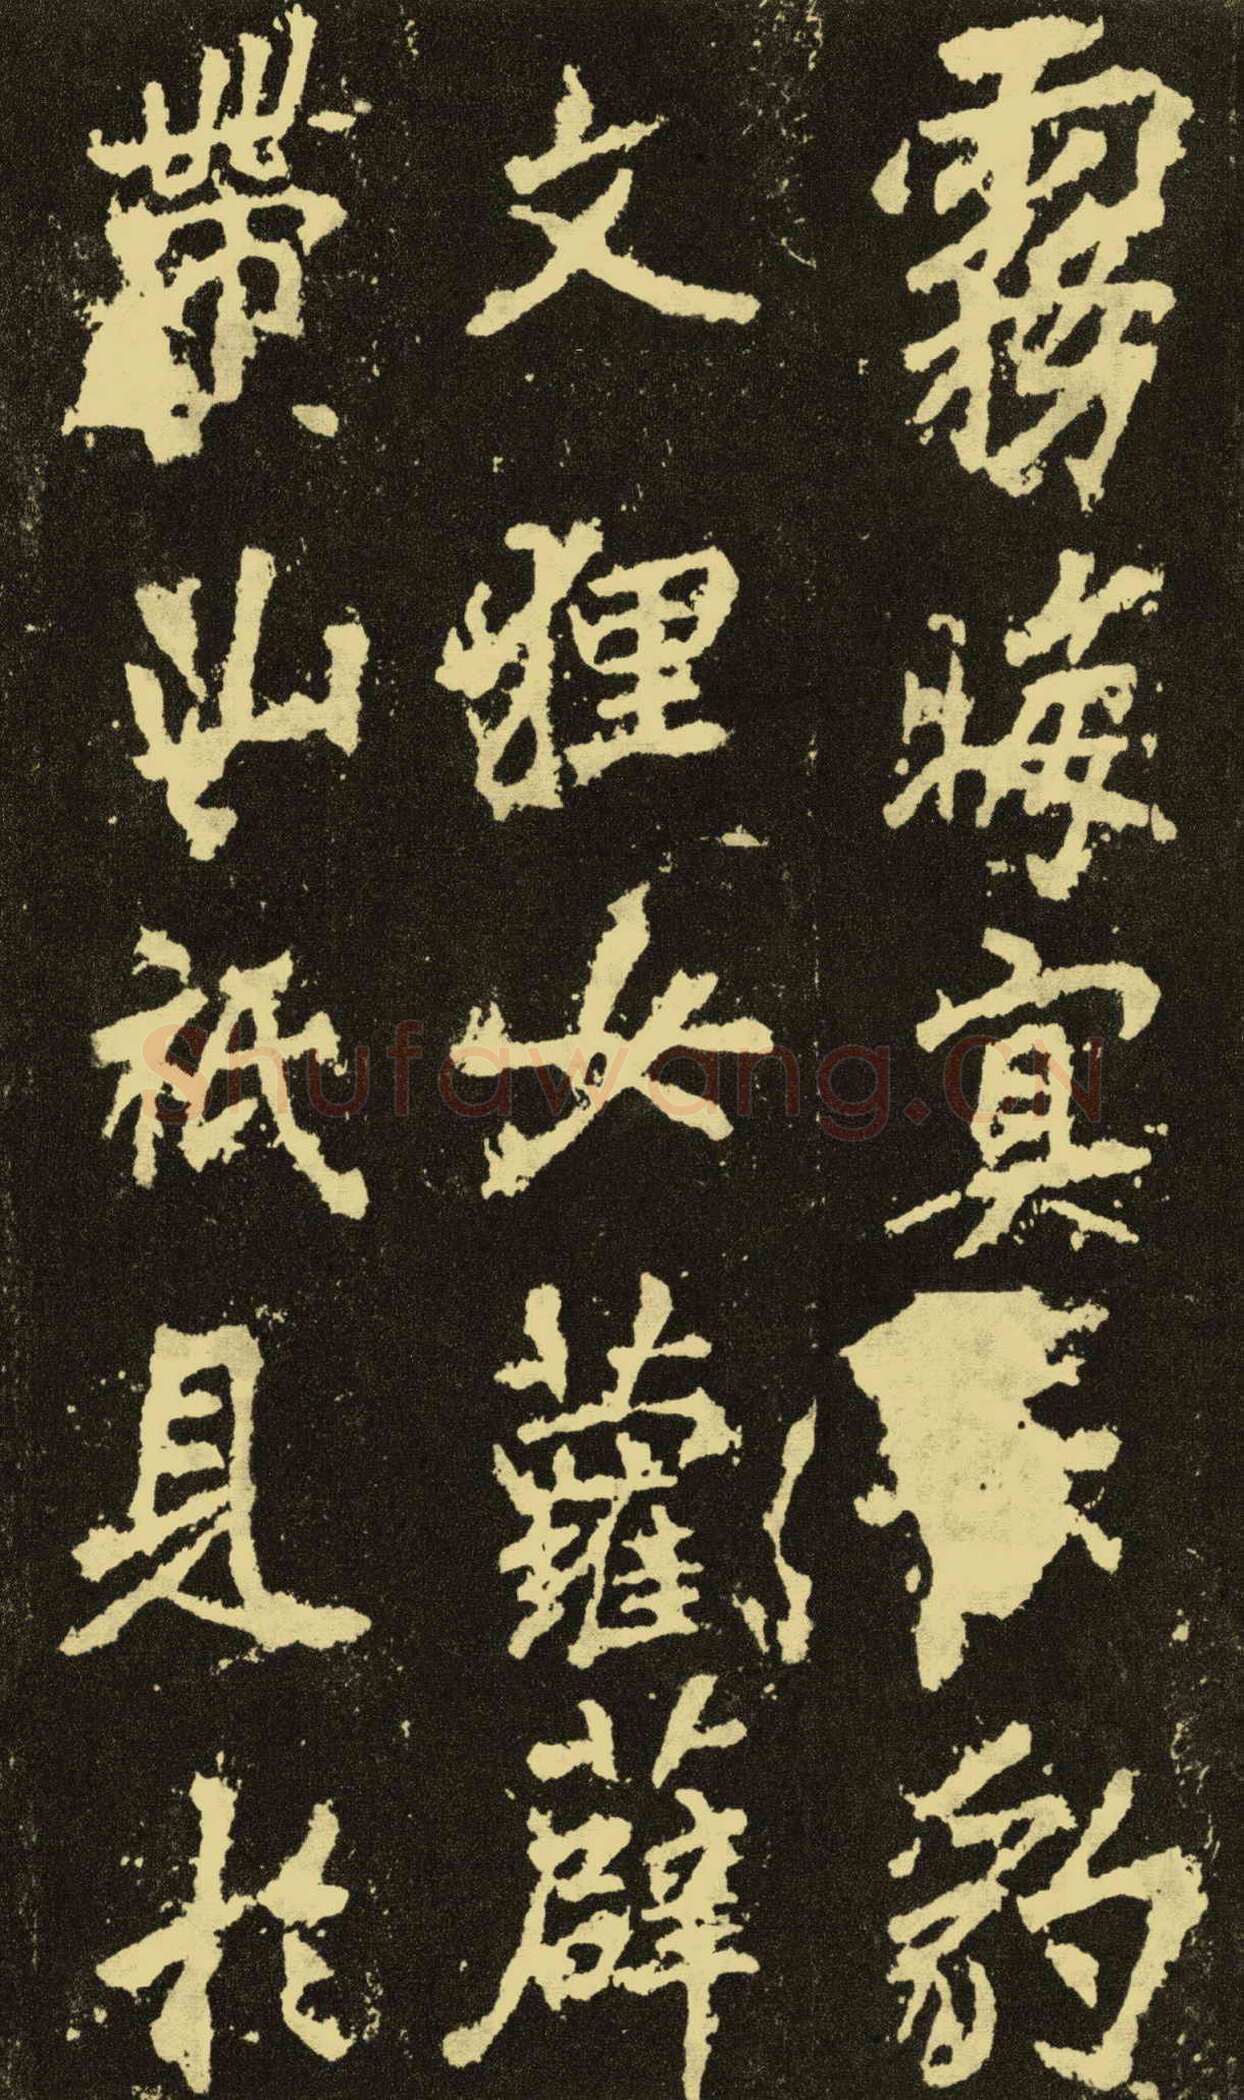 霧晦冥豹
文狸女蘿薜
帶山祇見於
Shufawang.CN